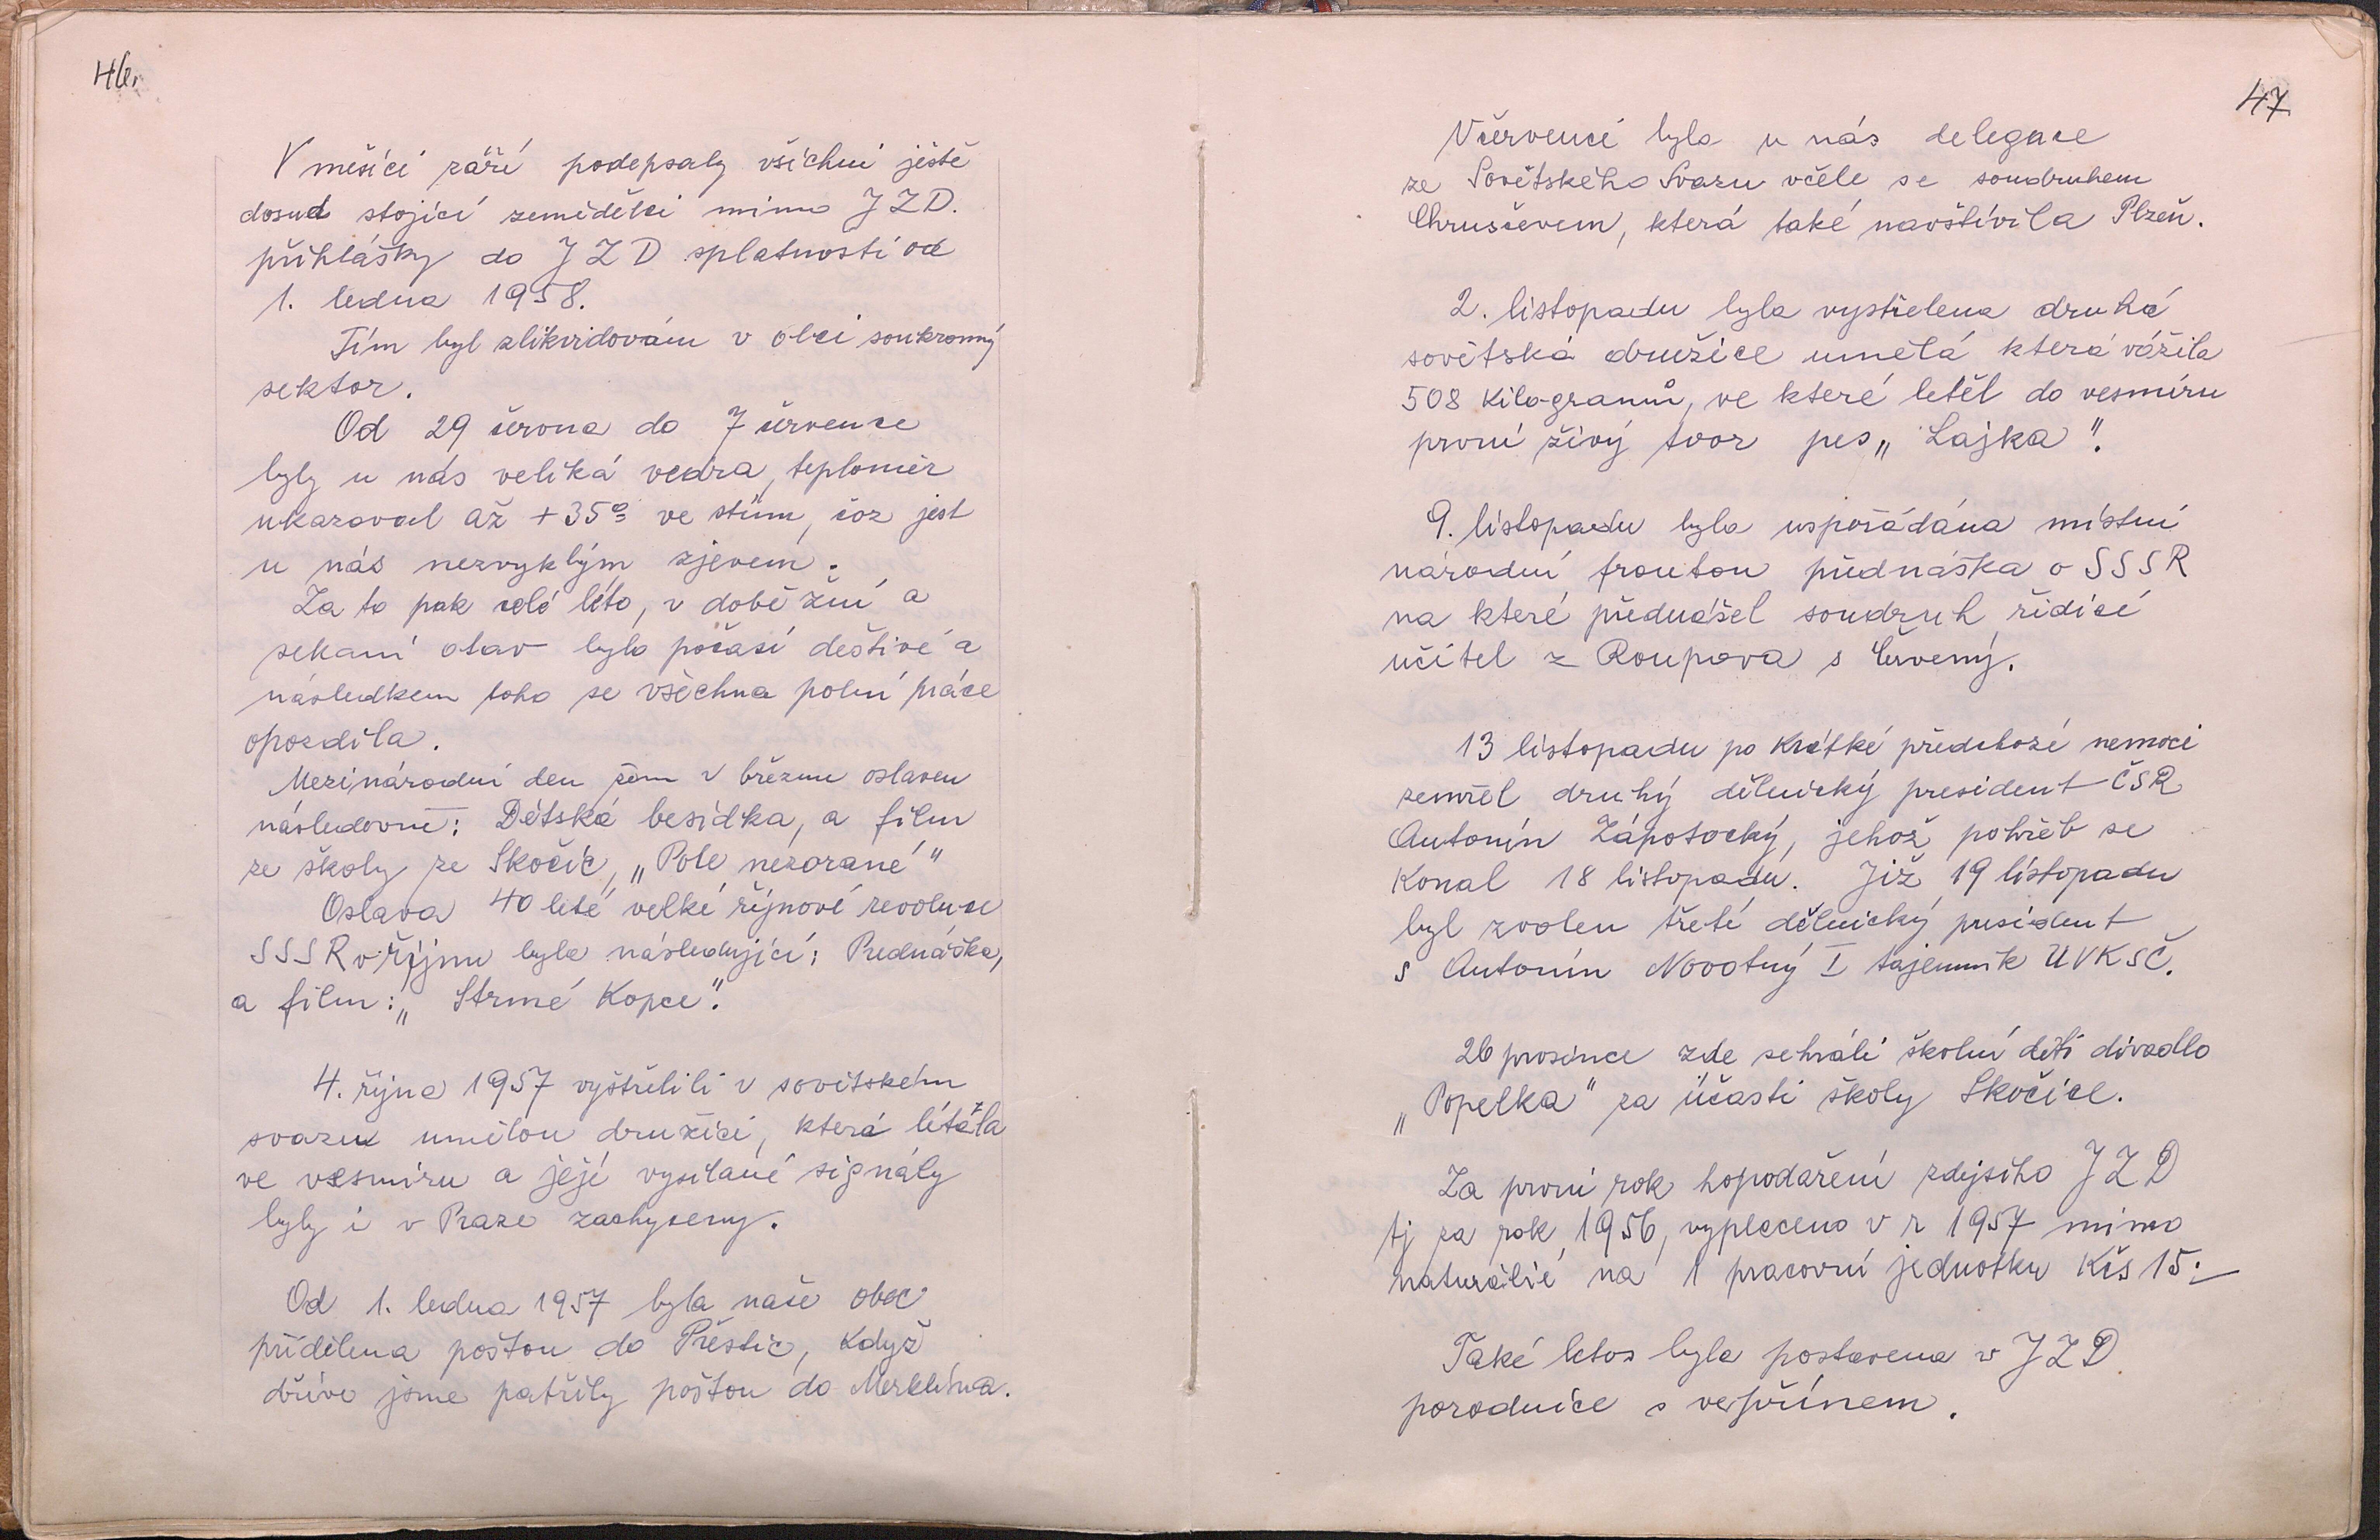 46.
V měsíci září podepsaly všichni ještě
dosud stojící zemědělci mimo JZD.
přihlášky do JZD splatností od
1. ledna 1958.
Tím byl zlikvidován v obci soukromý
sektor.
Od 29 června do 7 července
byly u nás veliká vedra, teploměr
ukazoval až +35° ve stínu, což jest
u nás nezvyklým zjevem.
Za to pak celé léto, v době žní a
sekaní otav bylo počasí deštivé a
následkem toho se všechna polní práce
opozdila.
Mezinárodní den žen v březnu oslaven
následovně: Dětská besídka, a film
ze školy ze Skočic, „Pole nezorané"
Oslava 40 leté velké říjnové revoluce
SSSR v říjnu byla následující: Prednáška,
a film: „Strmé Kopce".
4. října 1957 vyštřelili v sovětském
svazu umělou družici, která létála
ve vesmíru a její vysílané signály
byly i v Praze zachyceny.
Od 1. ledna 1957 byla naše obec
přidělena poštou do Přeštic, Když
dříve jsme patřily poštou do Merklína.
47
Včervenci byla u nás delegace
ze Sovětského Svazu včele se soudruhem
Chruščevem, která také navštívila Plzeň.
2. listopadu byla vystřelena druhá
sovětská družice umělá která vážila
508 Kilogramů, ve které letěl do vesmíru
první živý tvor pes „Lajka".
9. listopadu byla uspořádána místní
národní frontou přednáška o SSSR
na které přednášel soudruh řídící
učitel z Roupova s Červený.
13 listopadu po Krátké předchozí nemoci
zemřel druhý dělnický president ČSR
Antonín Zápotocký, jehož pohřeb se
Konal 18 listopadu. Již 19 listopadu
byl zvolen třetí dělnický president
s Antonín Novotný I tajemník ÚVKSČ.
26 prosince zde sehráli školní děti divadlo
„Popelka" za účasti školy Skočice.
Za první rok hopodaření zdejšího JZD
tj za rok 1956, vyplaceno v r 1957 mimo
naturálií na 1 pracovní jednotku Kčs 15.-
Také letos byla postavena v JZD
porodnice s vepřínem.